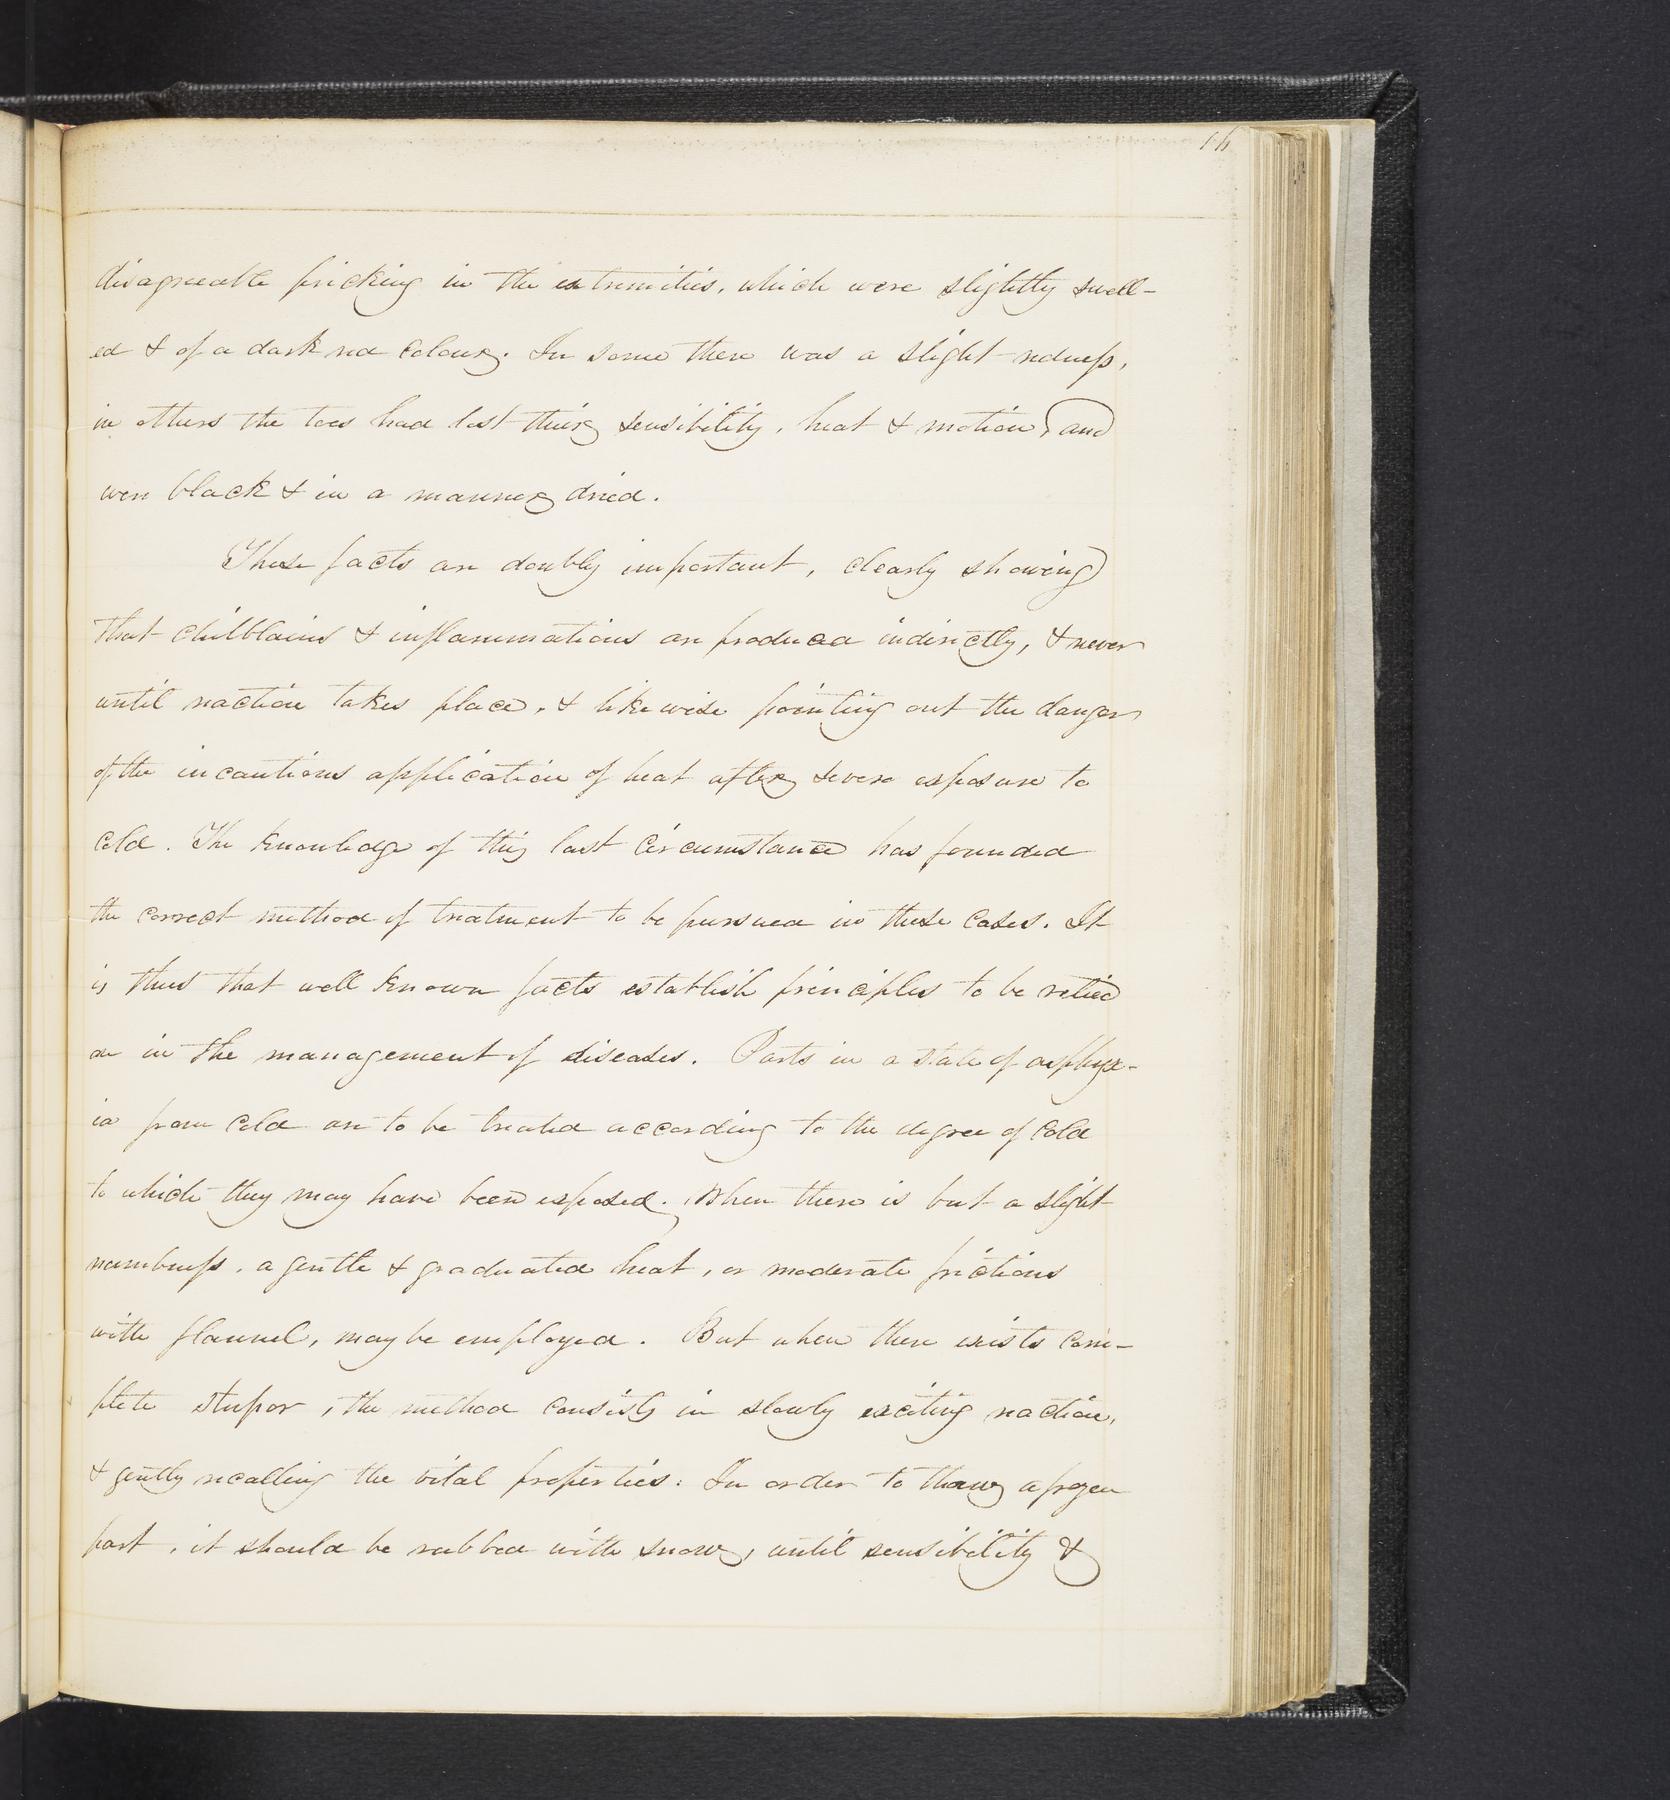 disagreeable pricking in the extremities, which were slightly swell-
ed & of a dark red colour. In some there was a slight redness,
in others the toes had lost their sensibility, heat & motion, and
were black & in a manner dried.
These facts are doubly important, clearly showing
that chilblains & inflammations are produced indirectly, & never
until reaction takes place, & likewise pointing out the danger
of the incautious application of heat after severe exposure to
cold. The knowledge of this last circumstance has founded
the correct method of treatment to be pursued in these cases. It
is thus that well known facts establish principles to be relied
on in the management of diseases. Parts in a state of asphyx-
ia from cold are to be treated according to the degree of cold
to which they may have been exposed. When there is but a slight
numbness, a gentle & graduated heat, or moderate frictions
with flannel, may be employed. But when there exists com-
plete stupor, the method consists in slowly exciting reaction,
& gently recalling the vital properties: In order to thaw a frozen
part, it should be rubbed with snow, until sensibility &